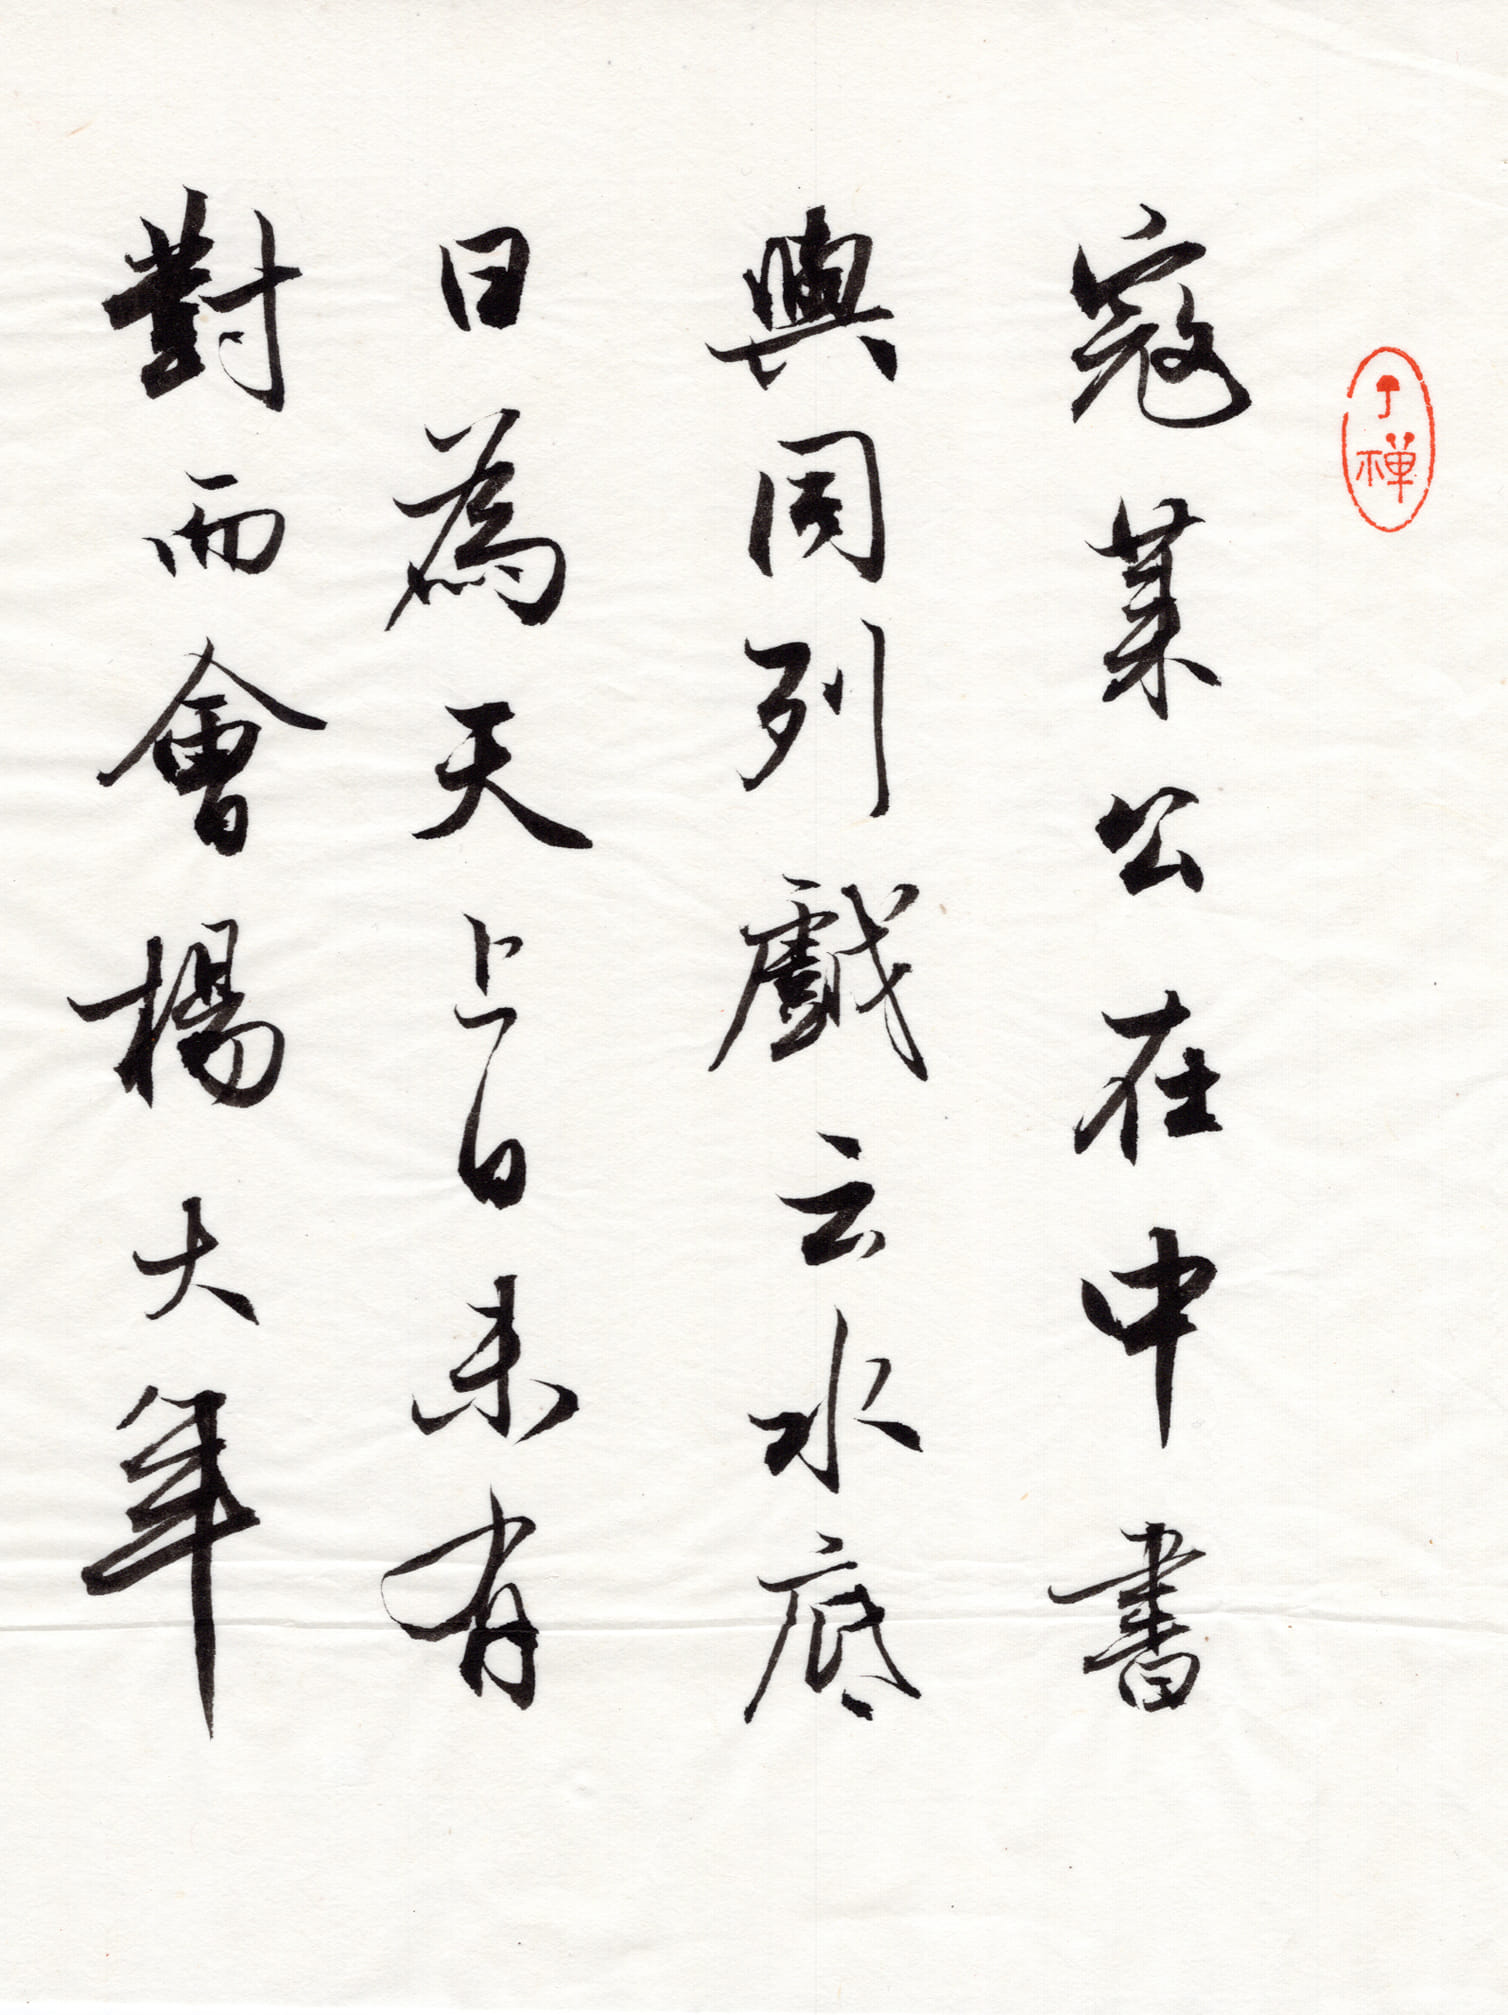 寇萊公在中書
與同列戲云水底
日為天上日未有
對而會楊大年
了禪